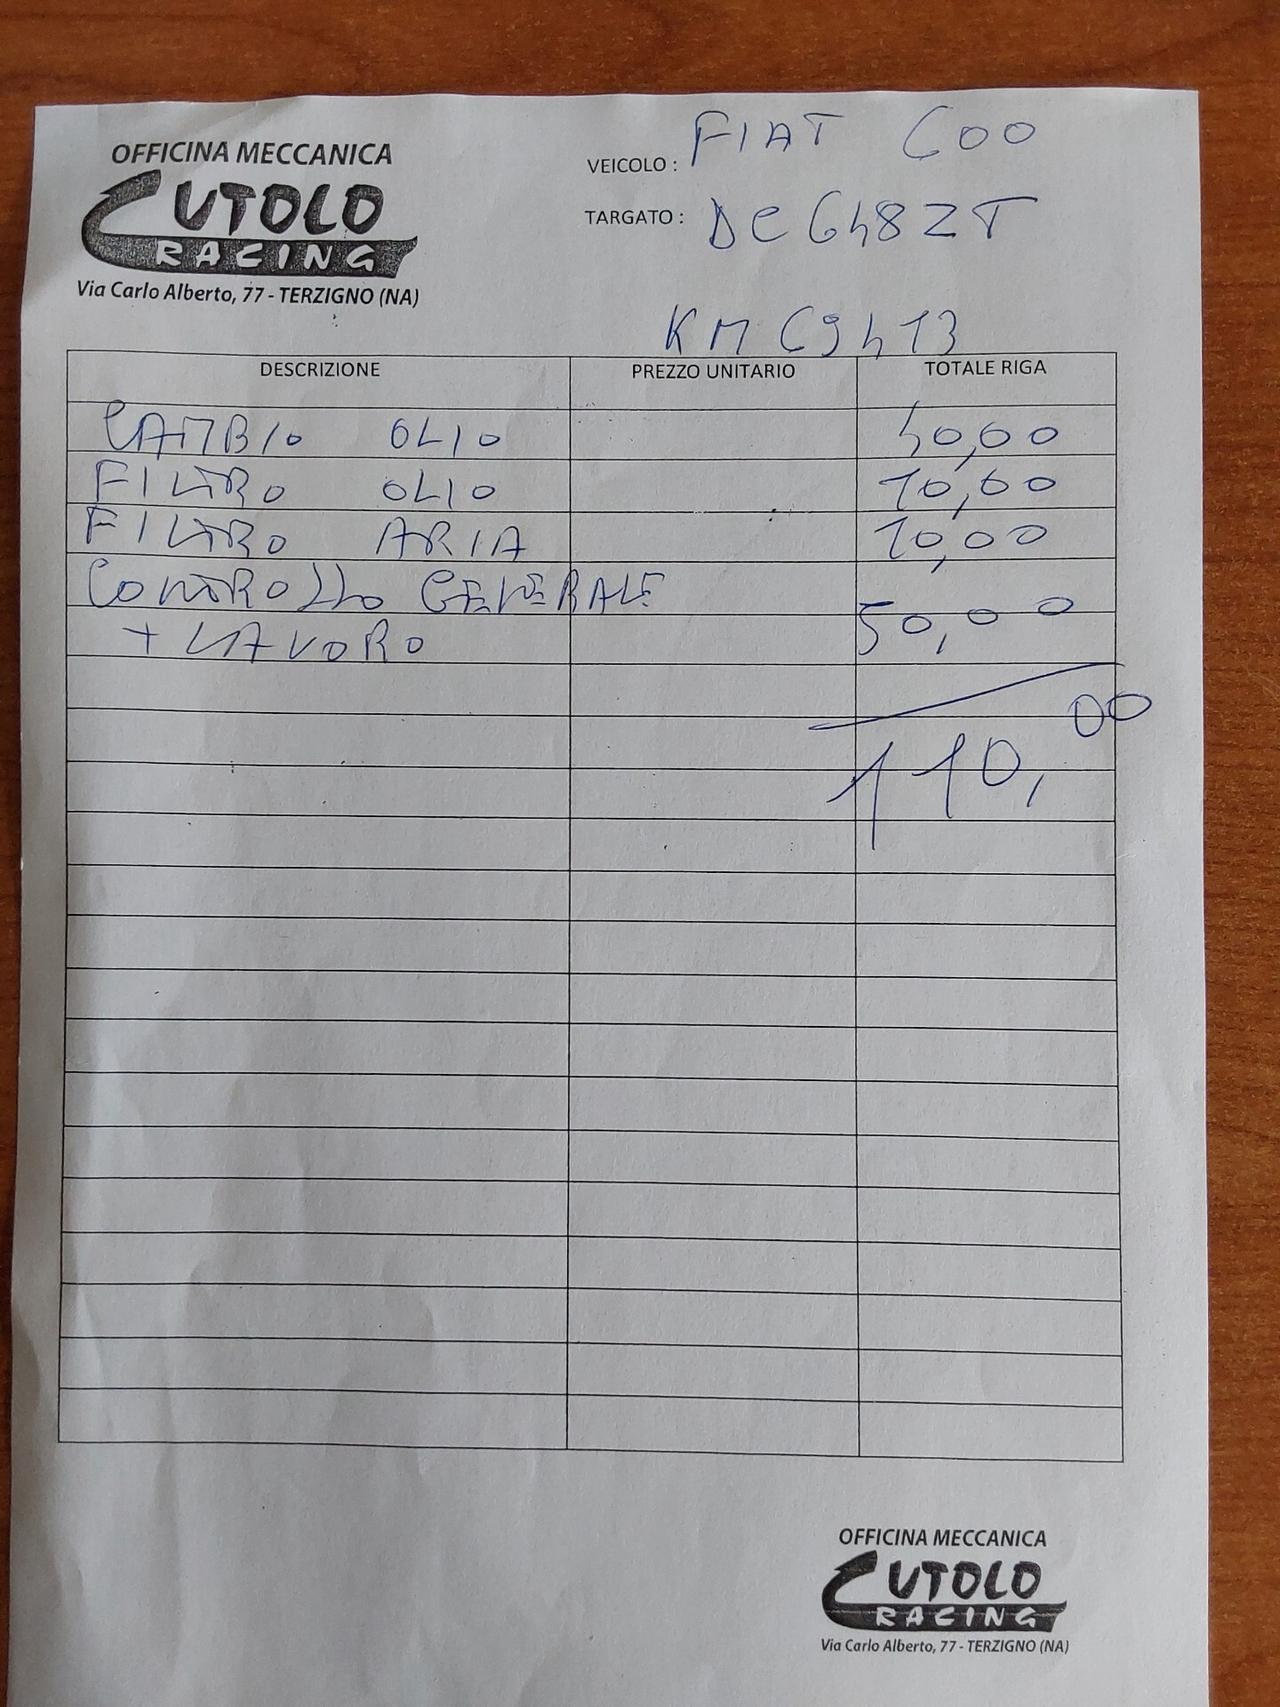 OFFICINA MECCANICA
CUTOLO
RACING
Via Carlo Alberto, 77 - TERZIGNO (NA)
VEICOLO : FIAT 600
TARGATO : DC648ZT
KM 69413
DESCRIZIONE PREZZO UNITARIO TOTALE RIGA
CAMBIO OLIO 40,00
FILTRO OLIO 10,00
FILTRO ARIA 10,00
CONTROLLO GENERALE
+ LAVORO 50,00
110,00
OFFICINA MECCANICA
CUTOLO
RACING
Via Carlo Alberto, 77 - TERZIGNO (NA)